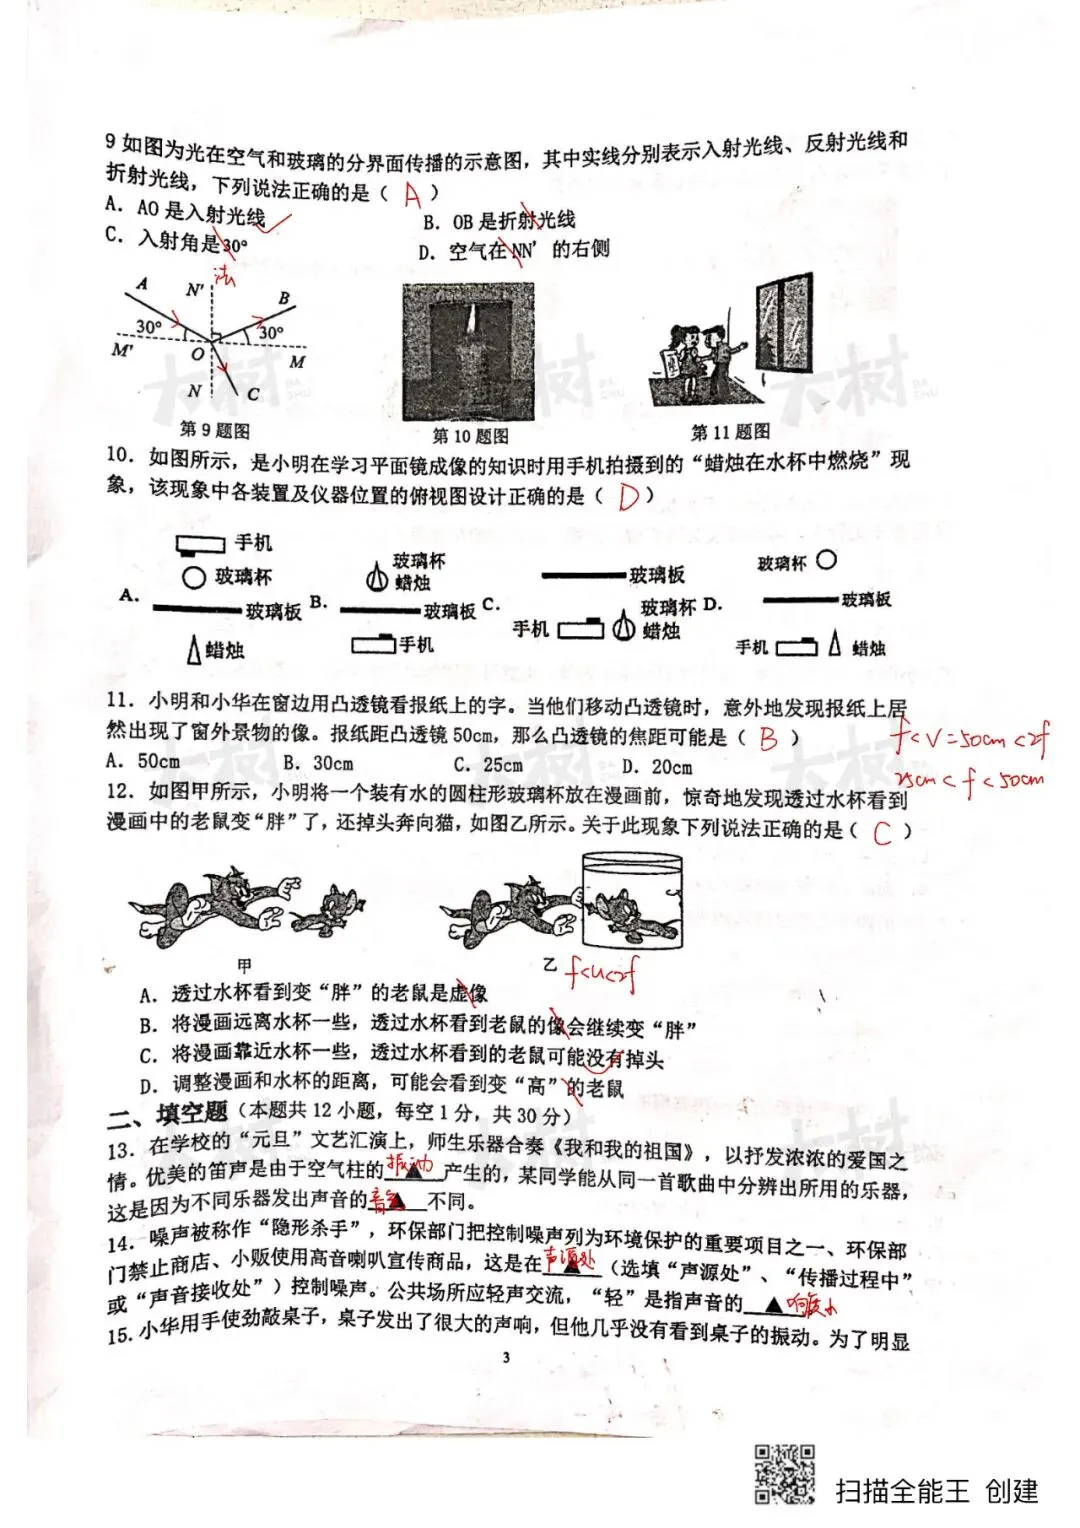 9 如图为光在空气和玻璃的分界面传播的示意图，其中实线分别表示入射光线、反射光线和
折射光线，下列说法正确的是（ A ）
A. AO 是入射光线
B. OB 是折射光线
C. 入射角是 30°
D. 空气在 NN′ 的右侧
法
A N′ B
30° 30°
M′ O M
N C
第 9 题图
第 10 题图
第 11 题图
10. 如图所示，是小明在学习平面镜成像的知识时用手机拍摄到的“蜡烛在水杯中燃烧”现
象，该现象中各装置及仪器位置的俯视图设计正确的是（ D ）
A. 手机 玻璃杯 玻璃板 蜡烛
B. 玻璃杯 蜡烛 玻璃板 手机
C. 玻璃板 手机 玻璃杯 蜡烛
D. 玻璃杯 玻璃板 手机 蜡烛
11. 小明和小华在窗边用凸透镜看报纸上的字。当他们移动凸透镜时，意外地发现报纸上居
然出现了窗外景物的像。报纸距凸透镜 50cm，那么凸透镜的焦距可能是（ B ）
f<v=50cm<2f
A. 50cm B. 30cm C. 25cm D. 20cm
25cm<f<50cm
12. 如图甲所示，小明将一个装有水的圆柱形玻璃杯放在漫画前，惊奇地发现透过水杯看到
漫画中的老鼠变“胖”了，还掉头奔向猫，如图乙所示。关于此现象下列说法正确的是（ C ）
甲
乙 f<u<2f
A. 透过水杯看到变“胖”的老鼠是虚像
B. 将漫画远离水杯一些，透过水杯看到老鼠的像会继续变“胖”
C. 将漫画靠近水杯一些，透过水杯看到的老鼠可能没有掉头
D. 调整漫画和水杯的距离，可能会看到变“高”的老鼠
二、填空题（本题共 12 小题，每空 1 分，共 30 分）
13. 在学校的“元旦”文艺汇演上，师生乐器合奏《我和我的祖国》，以抒发浓浓的爱国之
情。优美的笛声是由于空气柱的 振动▲ 产生的，某同学能从同一首歌曲中分辨出所用的乐器，
这是因为不同乐器发出声音的 音色▲ 不同。
14. 噪声被称作“隐形杀手”，环保部门把控制噪声列为环境保护的重要项目之一、环保部
门禁止商店、小贩使用高音喇叭宣传商品，这是在 声源处▲ （选填“声源处”、“传播过程中”
或“声音接收处”）控制噪声。公共场所应轻声交流，“轻”是指声音的 ▲ 响度小
15. 小华用手使劲敲桌子，桌子发出了很大的声响，但他几乎没有看到桌子的振动。为了明显
3
大树
扫描全能王 创建